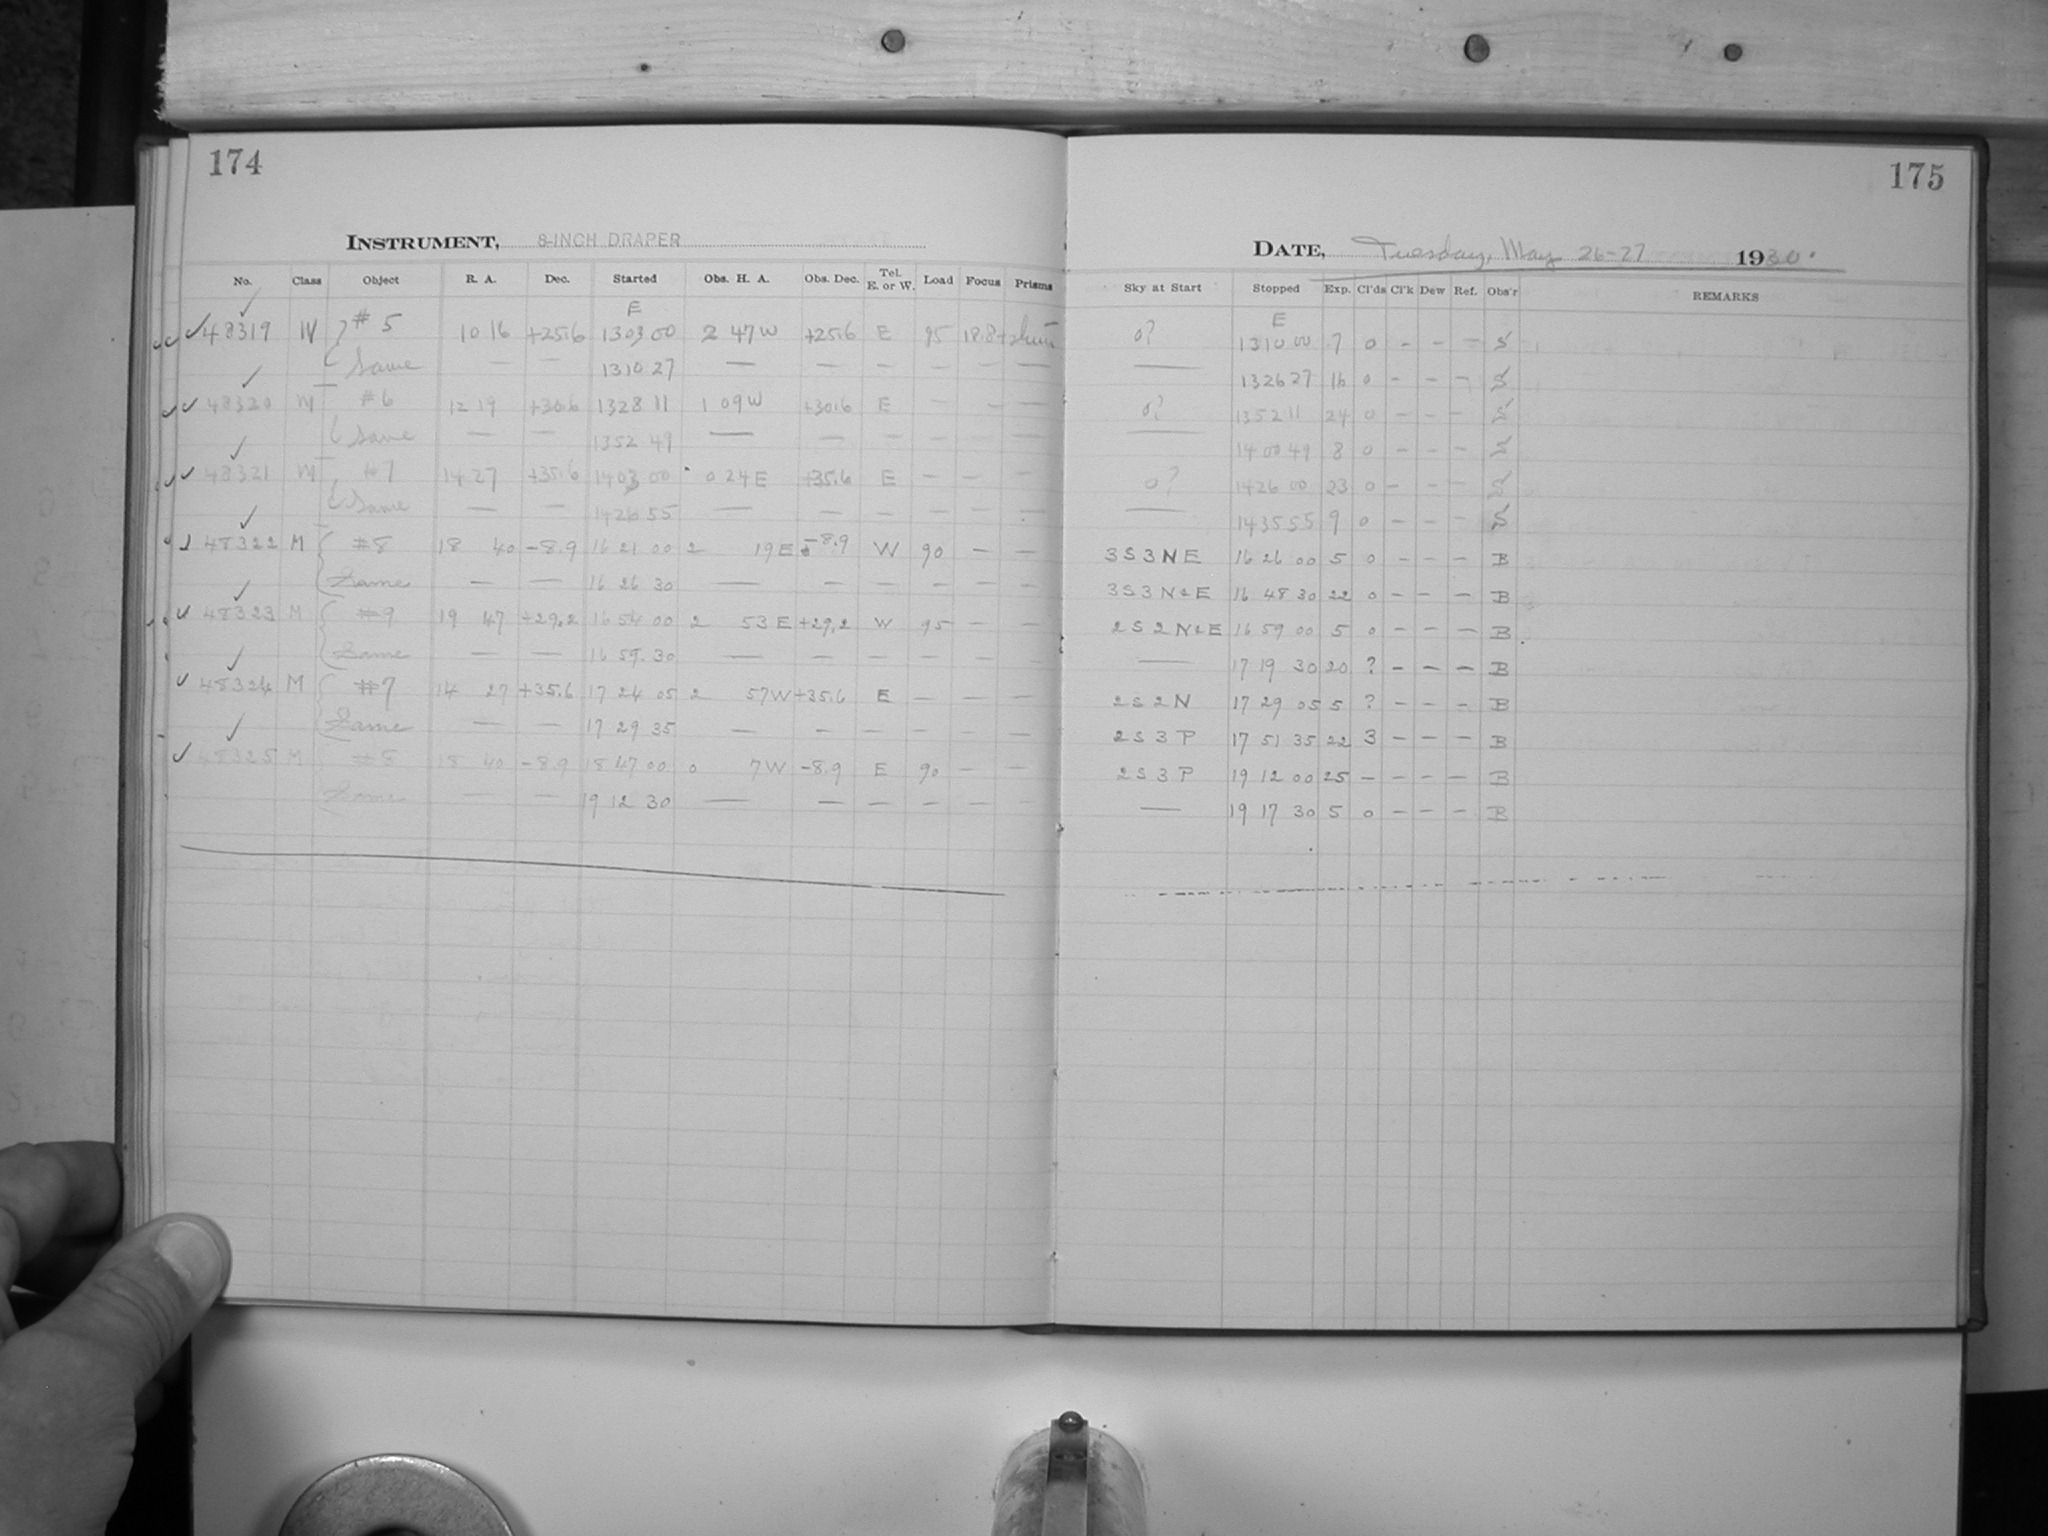 174
INSTRUMENT, 8-INCH DRAPER
No. Class Object R. A. Dec. Started Obs. H. A. Obs. Dec. Tel. E. or W. Load Focus Prisms
E
48319 M #5 10 16 +25.6 13 03 00 2 47 W +25.6 E 95 18.8
Same — — 13 10 27 — — — — — —
48320 M #6 12 19 +30.6 13 28 11 1 09 W +30.6 E — — —
Same — — 13 52 49 — — — — — —
48321 M #7 14 27 +35.6 14 03 00 0 24 E +35.6 E — — —
Same — — 14 26 55 — — — — — —
48322 M #8 18 40 -8.9 16 21 00 2 19 E -8.9 W 90 — —
Same — — 16 26 30 — — — — — —
48323 M #9 19 47 +29.2 16 54 00 2 53 E +29.2 W 95 — —
Same — — 16 59 30 — — — — — —
48324 M #7 14 27 +35.6 17 24 05 2 57 W +35.6 E — — —
Same — — 17 29 35 — — — — — —
48325 M #8 18 40 -8.9 18 47 00 0 7 W -8.9 E 90 — —
Same — — 19 12 30 — — — — — —
175
DATE, Tuesday, May 26-27 1930.
Sky at Start Stopped Exp. Cl'ds Cl'k Dew Ref. Obs'r REMARKS
E
0? 13 10 00 7 0 — — — S
— 13 26 27 16 0 — — — S
0? 13 52 11 24 0 — — — S
— 14 00 49 8 0 — — — S
0? 14 26 00 23 0 — — — S
— 14 35 55 9 0 — — — S
3S3NE 16 26 00 5 0 — — — B
3S3N&E 16 48 30 22 0 — — — B
2S2N&E 16 59 00 5 0 — — — B
— 17 19 30 20 ? — — — B
2S2N 17 29 05 5 ? — — — B
2S3P 17 51 35 22 3 — — — B
2S3P 19 12 00 25 — — — — B
— 19 17 30 5 0 — — — B